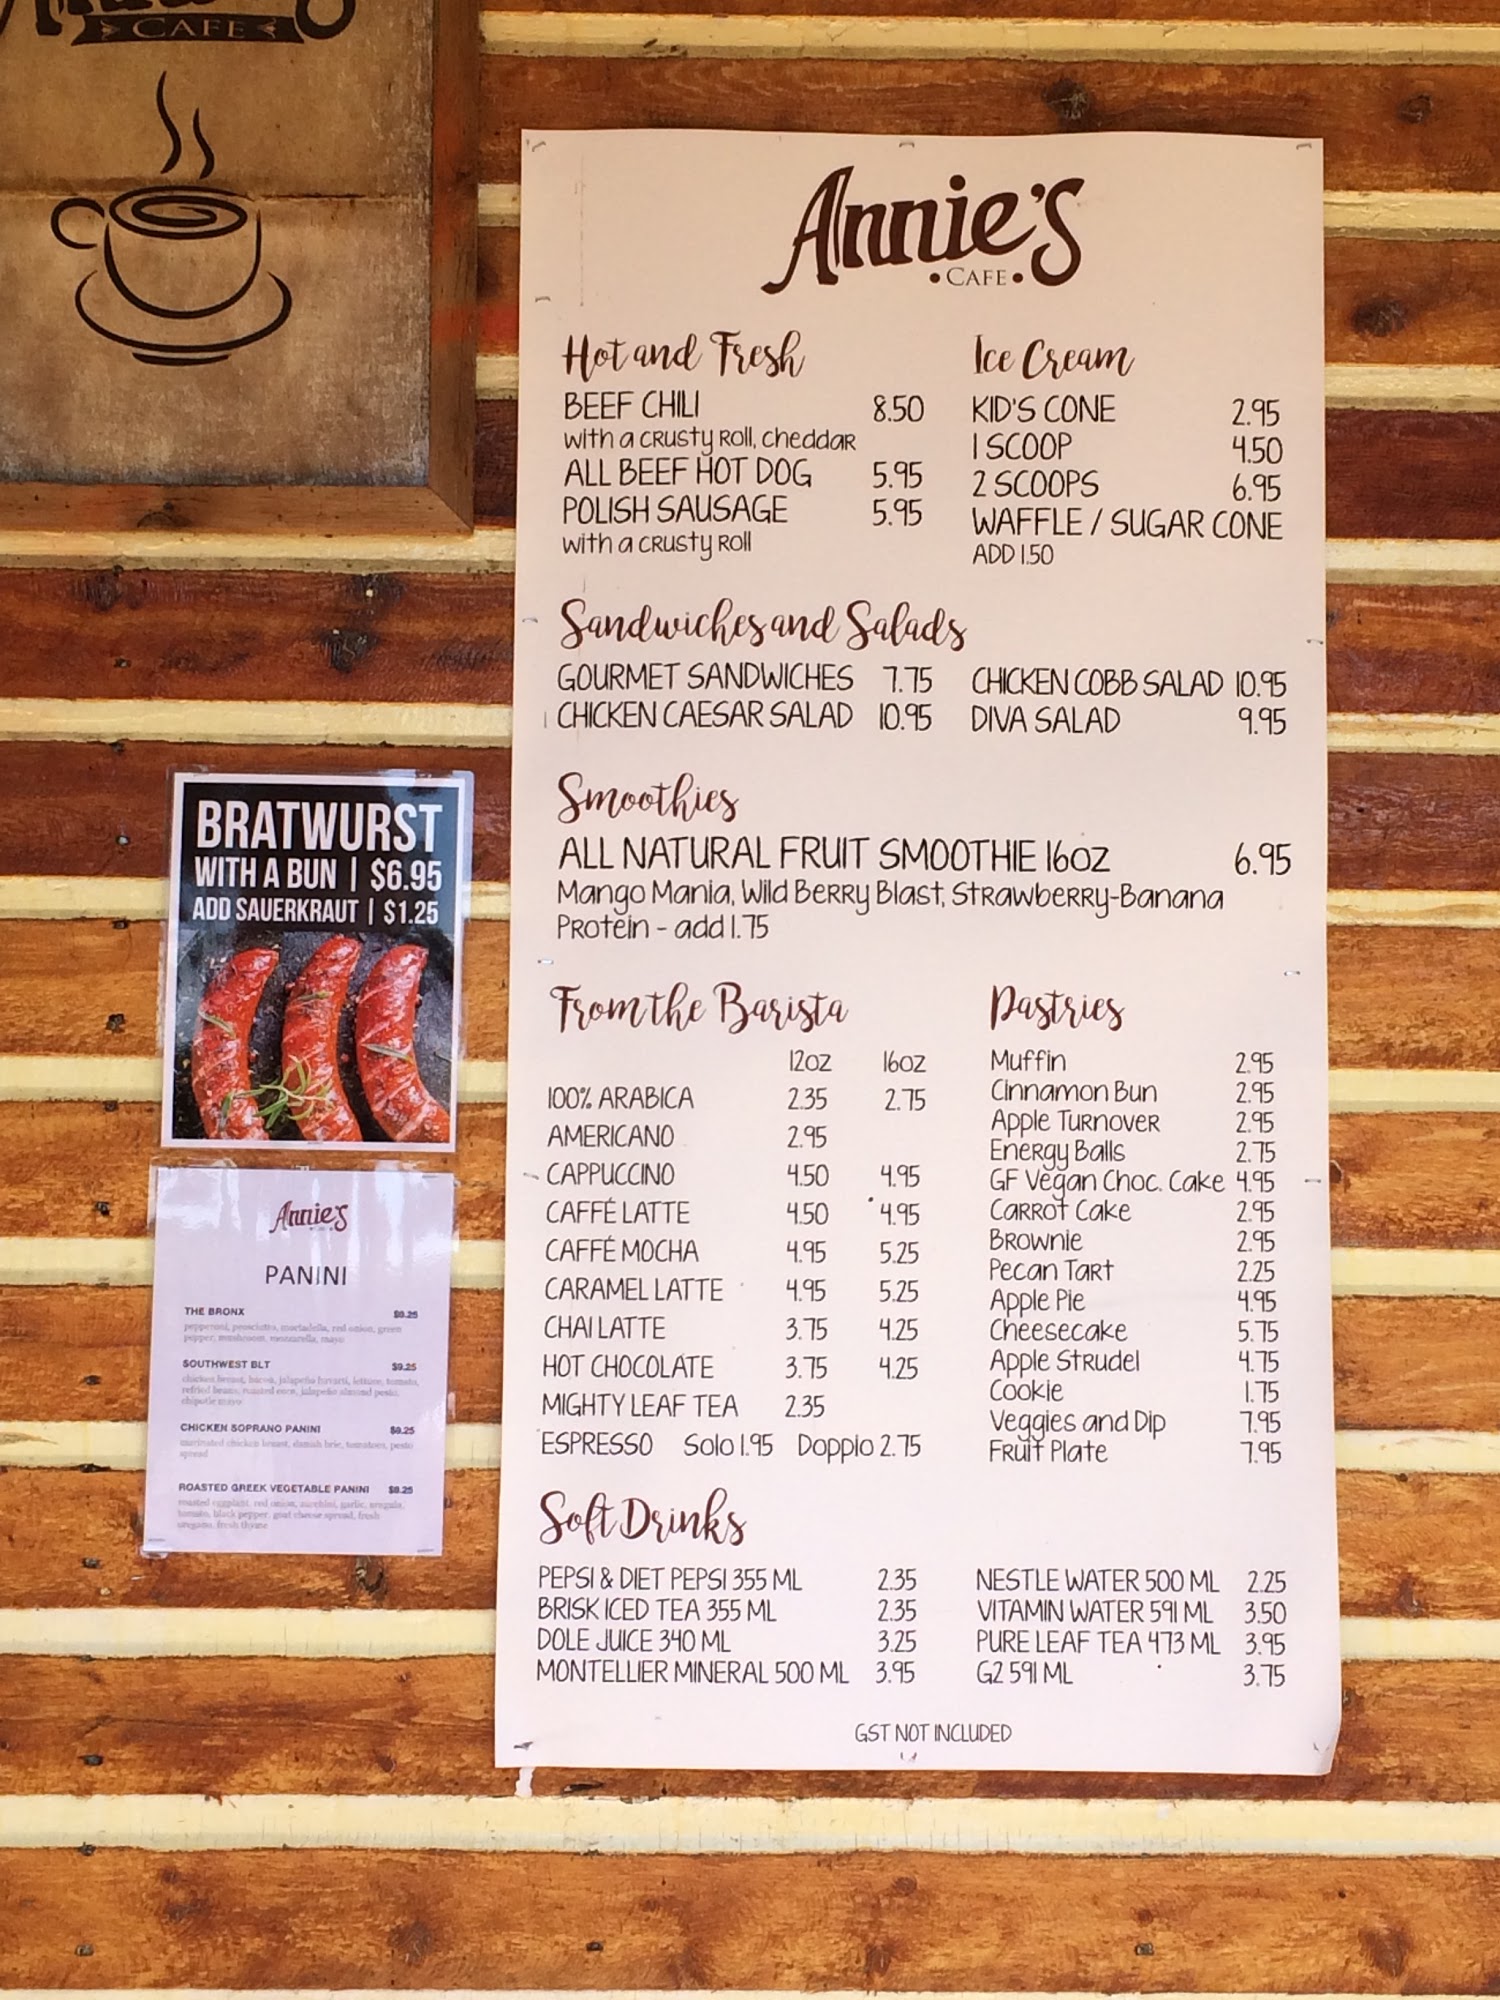 CAFE
Annie's
• CAFE •
Hot and Fresh
BEEF CHILI 8.50
with a crusty roll, cheddar
ALL BEEF HOT DOG 5.95
POLISH SAUSAGE 5.95
with a crusty roll
Ice Cream
KID'S CONE 2.95
1 SCOOP 4.50
2 SCOOPS 6.95
WAFFLE / SUGAR CONE
ADD 1.50
Sandwiches and Salads
GOURMET SANDWICHES 7.75
CHICKEN CAESAR SALAD 10.95
CHICKEN COBB SALAD 10.95
DIVA SALAD 9.95
Smoothies
ALL NATURAL FRUIT SMOOTHIE 16oz 6.95
Mango Mania, Wild Berry Blast, Strawberry-Banana
Protein - add 1.75
From the Barista
12oz 16oz
100% ARABICA 2.35 2.75
AMERICANO 2.95
CAPPUCCINO 4.50 4.95
CAFFÉ LATTE 4.50 4.95
CAFFÉ MOCHA 4.95 5.25
CARAMEL LATTE 4.95 5.25
CHAI LATTE 3.75 4.25
HOT CHOCOLATE 3.75 4.25
MIGHTY LEAF TEA 2.35
ESPRESSO Solo 1.95 Doppio 2.75
Pastries
Muffin 2.95
Cinnamon Bun 2.95
Apple Turnover 2.95
Energy Balls 2.75
GF Vegan Choc. Cake 4.95
Carrot Cake 2.95
Brownie 2.95
Pecan Tart 2.25
Apple Pie 4.95
Cheesecake 5.75
Apple Strudel 4.75
Cookie 1.75
Veggies and Dip 7.95
Fruit Plate 7.95
Soft Drinks
PEPSI & DIET PEPSI 355 ML 2.35
BRISK ICED TEA 355 ML 2.35
DOLE JUICE 340 ML 3.25
MONTELLIER MINERAL 500 ML 3.95
NESTLE WATER 500 ML 2.25
VITAMIN WATER 591 ML 3.50
PURE LEAF TEA 473 ML 3.95
G2 591 ML 3.75
GST NOT INCLUDED
BRATWURST
WITH A BUN | $6.95
ADD SAUERKRAUT | $1.25
Annie's
PANINI
THE BRONX $9.25
pepperoni, prosciutto, mortadella, red onion, green
pepper, mushroom, mozzarella, mayo
SOUTHWEST BLT $9.25
chicken breast, bacon, jalapeño havarti, lettuce, tomato,
refried beans, roasted corn, jalapeño almond pesto,
chipotle mayo
CHICKEN SOPRANO PANINI $9.25
marinated chicken breast, danish brie, tomatoes, pesto
spread
ROASTED GREEK VEGETABLE PANINI $8.25
roasted eggplant, red onion, zucchini, garlic, arugula,
tomato, black pepper, goat cheese spread, fresh
oregano, fresh thyme